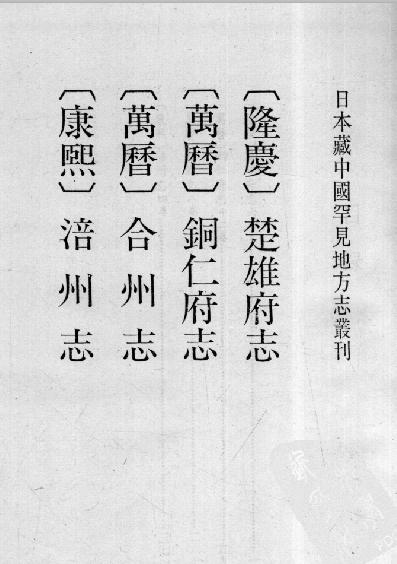 日本藏中國罕見地方志叢刊
〔隆慶〕楚雄府志
〔萬曆〕銅仁府志
〔萬曆〕合州志
〔康熙〕涪州志